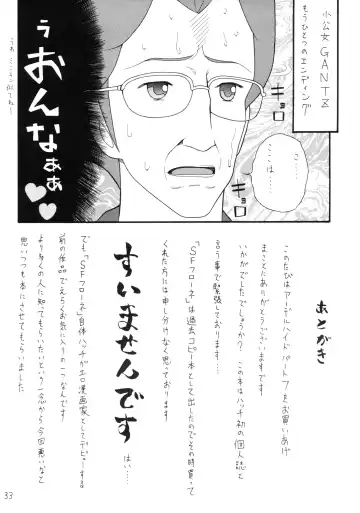 小公女GANTZ
もうひとつのエンディング
キョロ
キョロ
こ…
ここは…
う
おんなぁぁ
うわ こころん似てね〜
あとがき
このたびはアーデルハイドパート7をお買いあげ
まことにありがとうございます
いかがでしたでしょうか？ この本はハッチ初の個人誌と
言う事で緊張しております…
「SFフローネ」は過去コピー本として出したのでその時買って
くれた方には申し分けなく思っております
すいませんです
はい…
でも「SFフローネ」自体ハッチがエロ漫画家としてデビューする
前の作品でえらくお気に入りの一つなんです！
より多くの人に知ってもらいたいという一念から今回悪いなと
思いつつも本にさせてもらいました
33